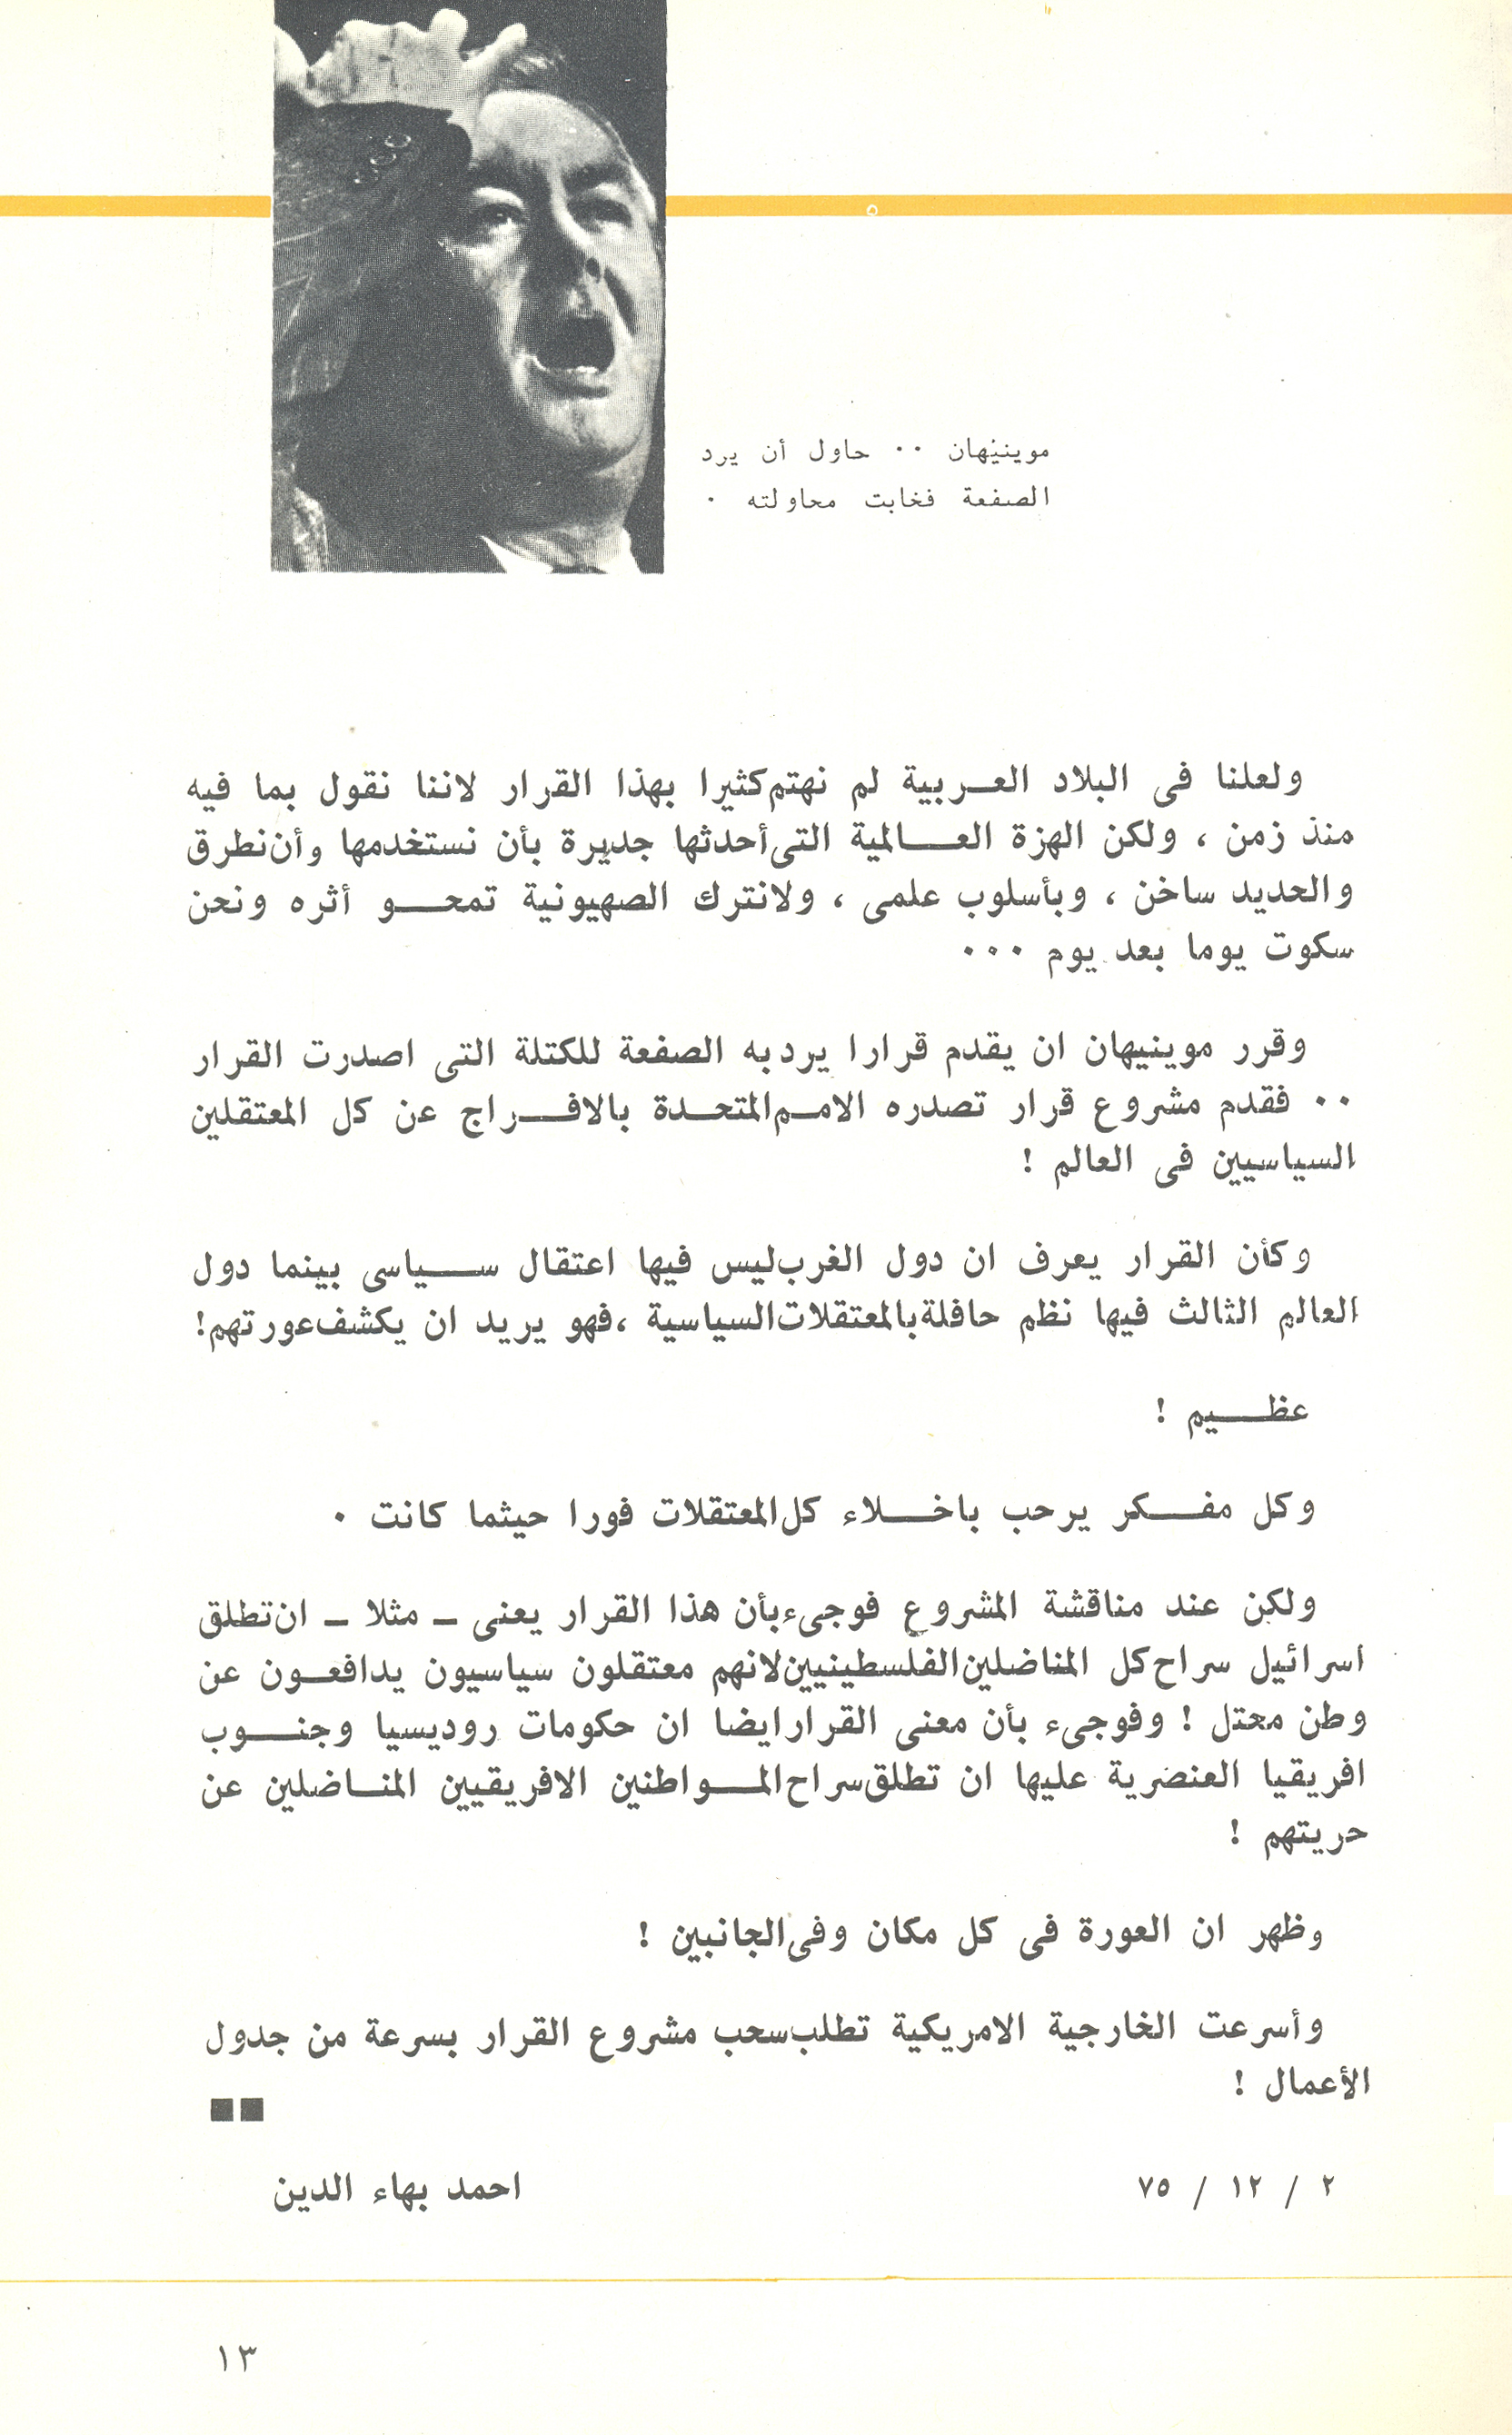 موينيهان ٠٠ حاول أن يرد
الصفعة فخابت محاولته ٠
ولعلنا فى البلاد العربية لم نهتم كثيرا بهذا القرار لاننا نقول بما فيه
منذ زمن ، ولكن الهزة العالمية التى أحدثها جديرة بأن نستخدمها وأن نطرق
والحديد ساخن ، وبأسلوب علمى ، ولا نترك الصهيونية تمحو أثره ونحن
سكوت يوما بعد يوم ٠٠٠
وقرر موينيهان ان يقدم قرارا يرد به الصفعة للكتلة التى اصدرت القرار
٠٠ فقدم مشروع قرار تصدره الامم المتحدة بالافراج عن كل المعتقلين
السياسيين فى العالم !
وكأن القرار يعرف ان دول الغرب ليس فيها اعتقال سياسى بينما دول
العالم الثالث فيها نظم حافلة بالمعتقلات السياسية ، فهو يريد ان يكشف عورتهم!
عظيم !
وكل مفكر يرحب باخلاء كل المعتقلات فورا حيثما كانت ٠
ولكن عند مناقشة المشروع فوجىء بأن هذا القرار يعنى ـ مثلا ـ ان تطلق
اسرائيل سراح كل المناضلين الفلسطينيين لانهم معتقلون سياسيون يدافعون عن
وطن محتل ! وفوجىء بأن معنى القرار ايضا ان حكومات روديسيا وجنوب
افريقيا العنصرية عليها ان تطلق سراح المواطنين الافريقيين المناضلين عن
حريتهم !
وظهر ان العورة فى كل مكان وفى الجانبين !
وأسرعت الخارجية الامريكية تطلب سحب مشروع القرار بسرعة من جدول
الأعمال !
٢ / ١٢ / ٧٥
احمد بهاء الدين
١٣